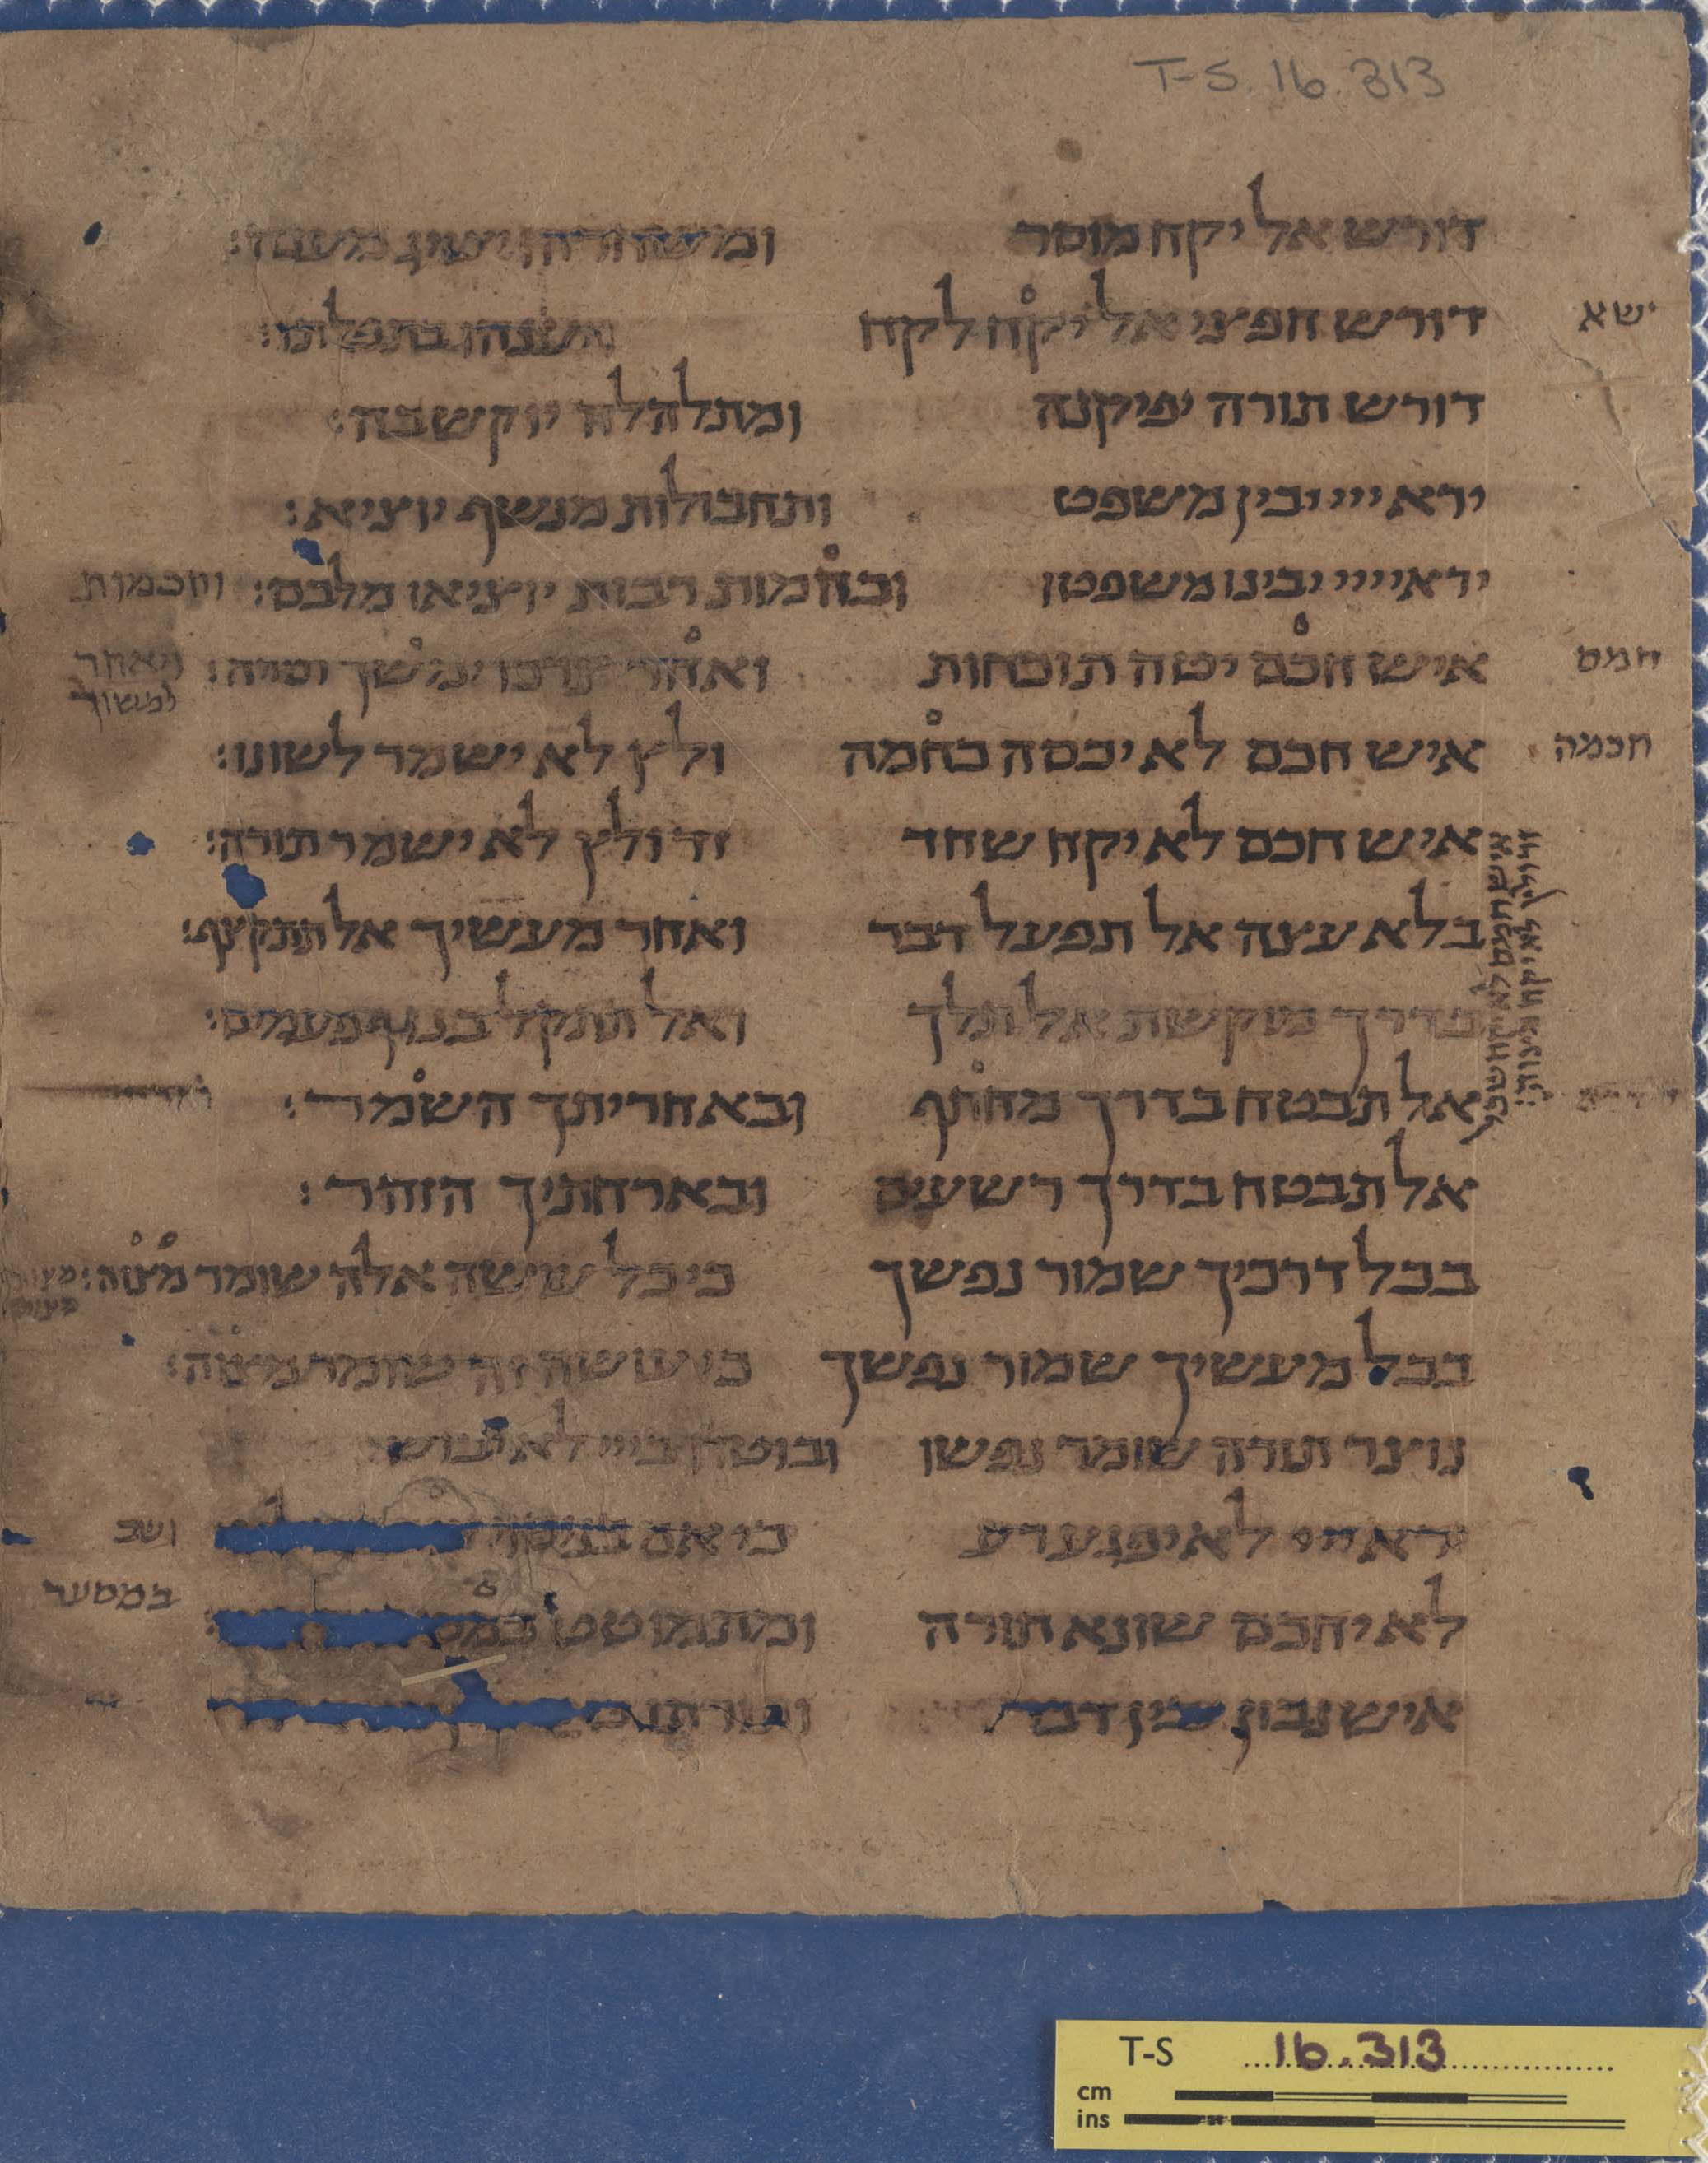 T-S. 16. 313
דורש אל יקח מוסר
ישא דורש חפצי אל יקח לקח
דורש תורה יפיקנה ומתלהלה יוקש בה׃
ירא ייי יבין משפט ותחבולות מנשף יוציא׃
יראי ייי יבינו משפטו ובחכמות רבות יוציאו מלבם׃ וחכמות
חמס איש חכם יטה תוכחות ואחר צרכו ימשך תורה׃ ויאחר
למשוך
חכמה איש חכם לא יכסה כחמה ולץ לא ישמר לשונו׃
איש חכם לא יקח שחד זד ולץ לא ישמר תורה׃
בלא עצה אל תפעל דבר ואחר מעשיך אל תתקצף׃
בדרך מוקשת אל תלך ואל תתקל בנגף פעמים׃
אל תבטח בדרך מחתף ובאחריתך השמר׃
אל תבטח בדרך רשעים ובארחתיך הזהר׃
בכל דרכיך שמור נפשך כי כל עושה אלה שומר מצוה׃
בכל מעשיך שמור נפשך כי עושה זה שומר מצוה׃
נוצר תורה שומר נפשו ובוטח בייי לא יבוש
ירא ייי לא יפגע רע כי אם בנסוי ושב
במסער
לא יחכם שונא תורה ומתמוטט
איש נבון יבין דבר
T-S 16.313
cm
ins